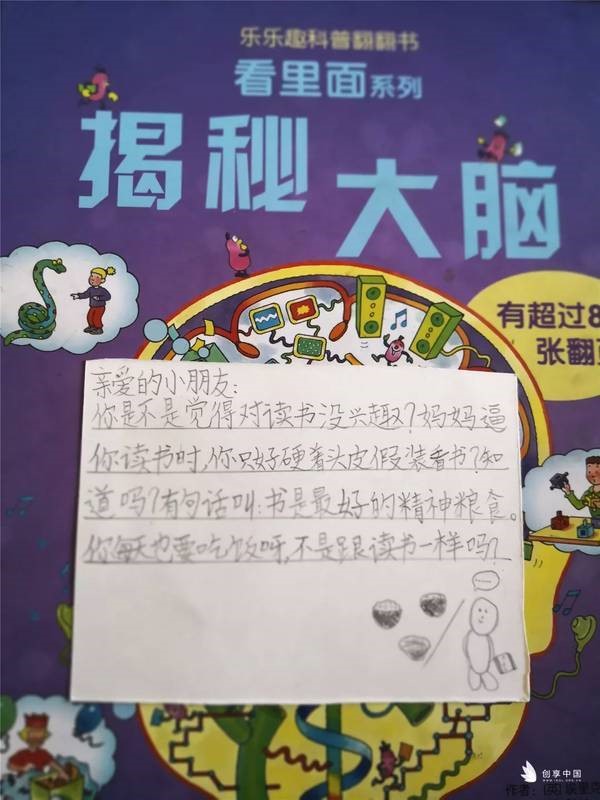 乐乐趣科普翻翻书
看里面系列
揭秘大脑
有超过8
张翻页
亲爱的小朋友:
你是不是觉得对读书没兴趣?妈妈逼
你读书时,你只好硬着头皮假装看书?知
道吗?有句话叫:书是最好的精神粮食。
你每天也要吃饭呀,不是跟读书一样吗?
创享中国
作者:[英]